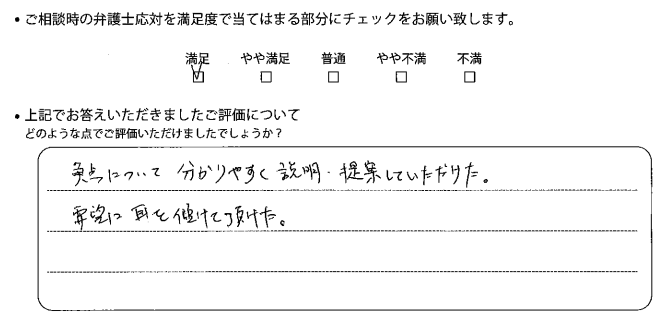 • ご相談時の弁護士応対を満足度で当てはまる部分にチェックをお願い致します。
満足 やや満足 普通 やや不満 不満
☑ □ □ □ □
• 上記でお答えいただきましたご評価について
どのような点でご評価いただけましたでしょうか？
争点について 分かりやすく 説明・提案していただけた。
要望に 耳を傾けて頂けた。